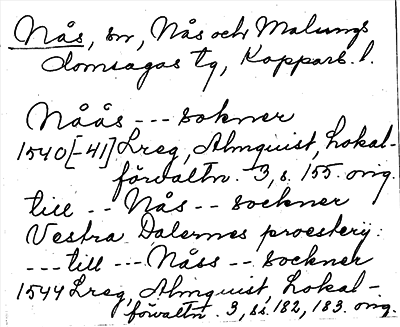 Nås, sn, Nås och Malungs
domsagas tg, Kopparb. l.
Nåås --- sokner
1540[-41] Lreg, Almquist, Lokal-
förvaltn. 3, s. 155. orig.
till -- Nås -- sockner
Vestra Dalernes prosterij:
--- till --- Nåss -- sockner
1544 Lreg, Almquist, Lokal-
förvaltn. 3, ss. 182, 183. orig.